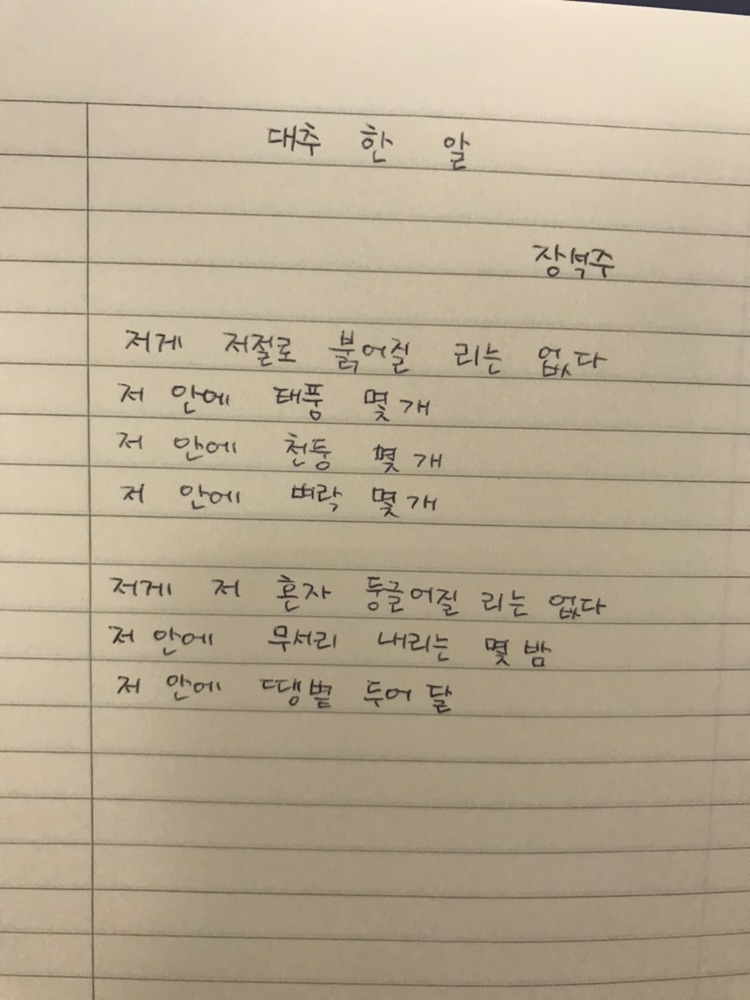 대추 한 알
장석주
저게 저절로 붉어질 리는 없다
저 안에 태풍 몇 개
저 안에 천둥 몇 개
저 안에 벼락 몇 개
저게 저 혼자 둥글어질 리는 없다
저 안에 무서리 내리는 몇 밤
저 안에 땡볕 두어 달